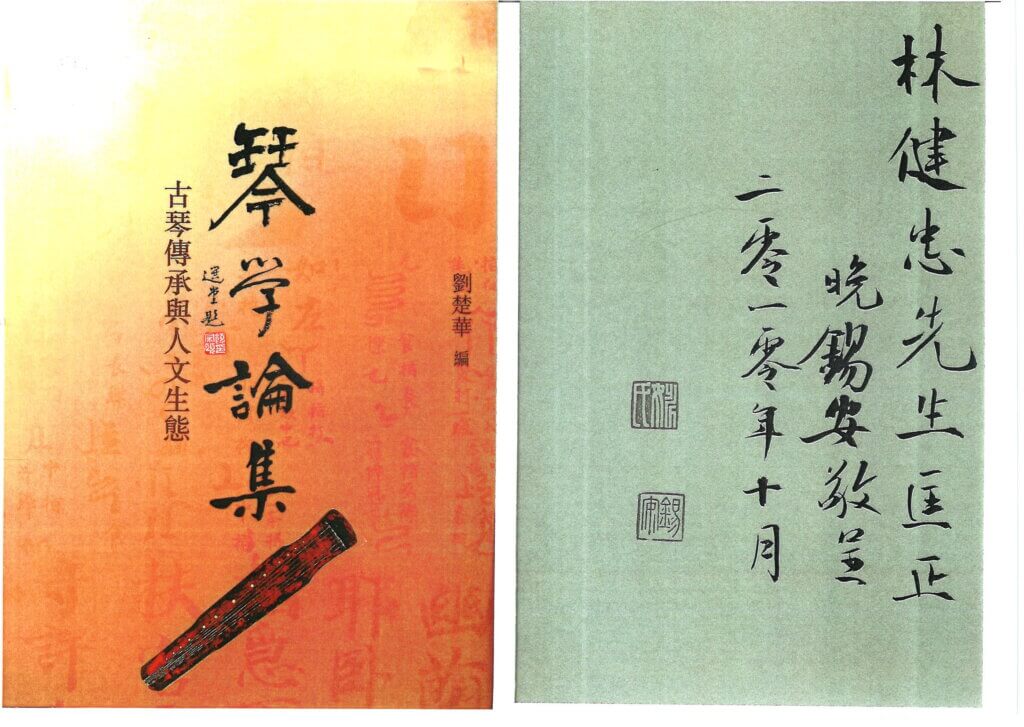 琴学論集
選堂題
古琴傳承與人文生態
劉楚華 編
林健忠先生匡正
晚錫安敬呈
二零一零年十月
錫安